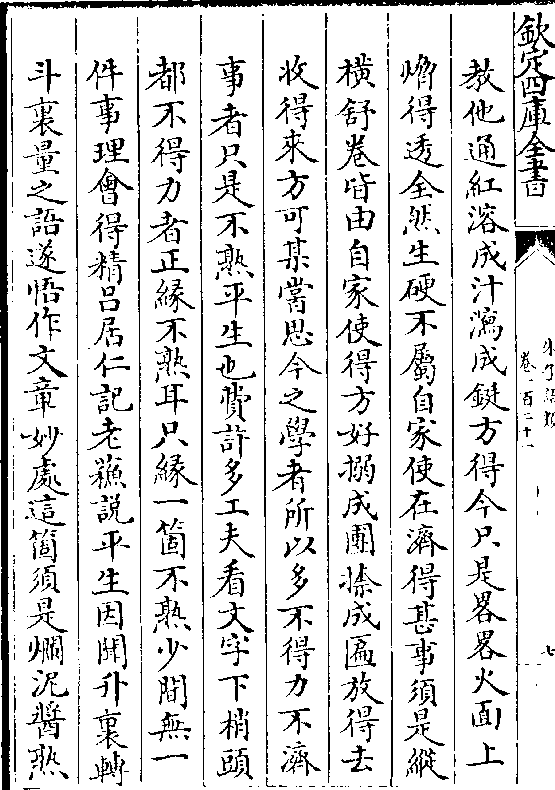 欽定四庫全書
朱子語類
卷一百二十一
七
教他通紅溶成汁瀉成鋌方得今只是畧畧火面上
熁得透全然生硬不屬自家使在濟得甚事須是縱
橫舒卷皆由自家使得方好搦成團捺成匾放得去
收得來方可某嘗思今之學者所以多不得力不濟
事者只是不熟平生也費許多工夫看文字下梢頭
都不得力者正緣不熟耳只緣一箇不熟少間無一
件事理會得精吕居仁記老蘇說平生因聞升裏轉
斗裏量之語遂悟作文章妙處這箇須是爛泥醬熟